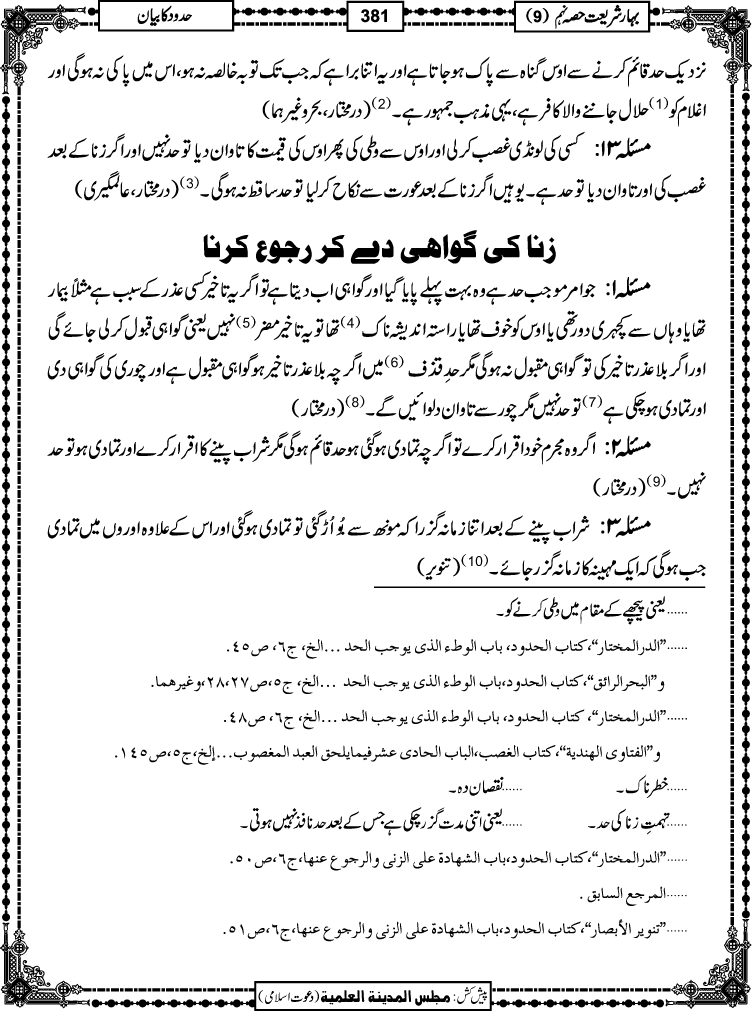 بہارِ شریعت حصہ نہم (9)
381
حدود کا بیان
نزدیک حد قائم کرنے سے اوس گناہ سے پاک ہو جاتا ہے اور یہ اتنا برا ہے کہ جب تک توبہ خالصہ نہ ہو، اس میں پاکی نہ ہوگی اور
اغلام کو(1) حلال جاننے والا کافر ہے، یہی مذہب جمہور ہے۔(2) (درمختار، بحر وغیرہما)
مسئلہ ۱۳: کسی کی لونڈی غصب کرلی اور اوس سے وطی کی پھر اوس کی قیمت کا تاوان دیا تو حد نہیں اور اگر زنا کے بعد
غصب کی اور تاوان دیا تو حد ہے۔ یوہیں اگر زنا کے بعد عورت سے نکاح کرلیا تو حد ساقط نہ ہوگی۔(3) (درمختار، عالمگیری)
زنا کی گواھی دے کر رجوع کرنا
مسئلہ ۱: جو امر موجب حد ہے وہ بہت پہلے پایا گیا اور گواہی اب دیتا ہے تو اگر یہ تاخیر کسی عذر کے سبب ہے مثلاً بیمار
تھا یا وہاں سے کچہری دور تھی یا اوس کو خوف تھا یا راستہ اندیشہ ناک(4) تھا تو یہ تاخیر مضر(5) نہیں یعنی گواہی قبول کرلی جائے گی
اور اگر بلا عذر تاخیر کی تو گواہی مقبول نہ ہوگی مگر حدِ قذف(6) میں اگرچہ بلا عذر تاخیر ہو گواہی مقبول ہے اور چوری کی گواہی دی
اور تمادی ہوچکی ہے(7) تو حد نہیں مگر چور سے تاوان دلوائیں گے۔(8) (درمختار)
مسئلہ ۲: اگر وہ مجرم خود اقرار کرے تو اگرچہ تمادی ہوگئی ہو حد قائم ہوگی مگر شراب پینے کا اقرار کرے اور تمادی ہو تو حد
نہیں۔(9) (درمختار)
مسئلہ ۳: شراب پینے کے بعد اتنا زمانہ گزرا کہ مونھ سے بُو اُڑ گئی تو تمادی ہوگئی اور اس کے علاوہ اوروں میں تمادی
جب ہوگی کہ ایک مہینہ کا زمانہ گزر جائے۔(10) (تنویر)
......یعنی پیچھے کے مقام میں وطی کرنے کو۔
......"الدرالمختار"، کتاب الحدود، باب الوطء الذی یوجب الحد ...الخ، ج٦، ص٤٥.
و"البحرالرائق"، کتاب الحدود، باب الوطء الذی یوجب الحد ...الخ، ج٥، ص٢٧،٢٨، وغیرھما.
......"الدرالمختار"، کتاب الحدود، باب الوطء الذی یوجب الحد ...الخ، ج٦، ص٤٨.
و"الفتاوی الھندیة"، کتاب الغصب، الباب الحادی عشر فیما یلحق العبد المغصوب...إلخ، ج٥، ص١٤٥.
......خطرناک۔ ......نقصان دہ۔
......تہمتِ زنا کی حد۔ ......یعنی اتنی مدت گزر چکی ہے جس کے بعد حد نافذ نہیں ہوتی۔
......"الدرالمختار"، کتاب الحدود، باب الشھادة علی الزنی والرجوع عنھا، ج٦، ص٥٠.
......المرجع السابق .
......"تنویر الأبصار"، کتاب الحدود، باب الشھادة علی الزنی والرجوع عنھا، ج٦، ص٥١.
پیش کش: مجلس المدینة العلمیة (دعوت اسلامی)